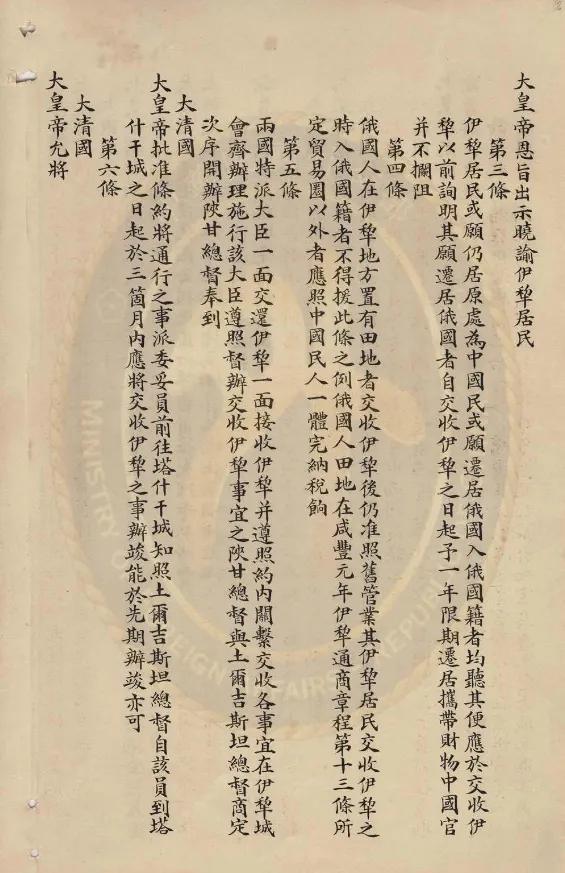 大皇帝恩旨出示曉諭伊犂居民
第三條
伊犂居民或願仍居原處為中國民或願遷居俄國入俄國籍者均聽其便應於交收伊
犂以前詢明其願遷居俄國者自交收伊犂之日起予一年限期遷居攜帶財物中國官
並不攔阻
第四條
俄國人在伊犂地方置有田地者交收伊犂後仍准照舊管業其伊犂居民交收伊犂之
時入俄國籍者不得援此條之例俄國人田地在咸豐元年伊犂通商章程第十三條所
定貿易圈以外者應照中國民人一體完納稅餉
第五條
兩國特派大臣一面交還伊犂一面接收伊犂并遵照約內關繫交收各事宜在伊犂城
會齊辦理施行該大臣遵照督辦交收伊犂事宜之陝甘總督與土爾吉斯坦總督商定
次序開辦陝甘總督奉到
大清國
大皇帝批准條約將通行之事派委妥員前往塔什干城知照土爾吉斯坦總督自該員到塔
什干城之日起於三箇月內應將交收伊犂之事辦竣能於先期辦竣亦可
第六條
大清國
大皇帝允將
MINISTR
EIGN AFFAIRS
REPUB